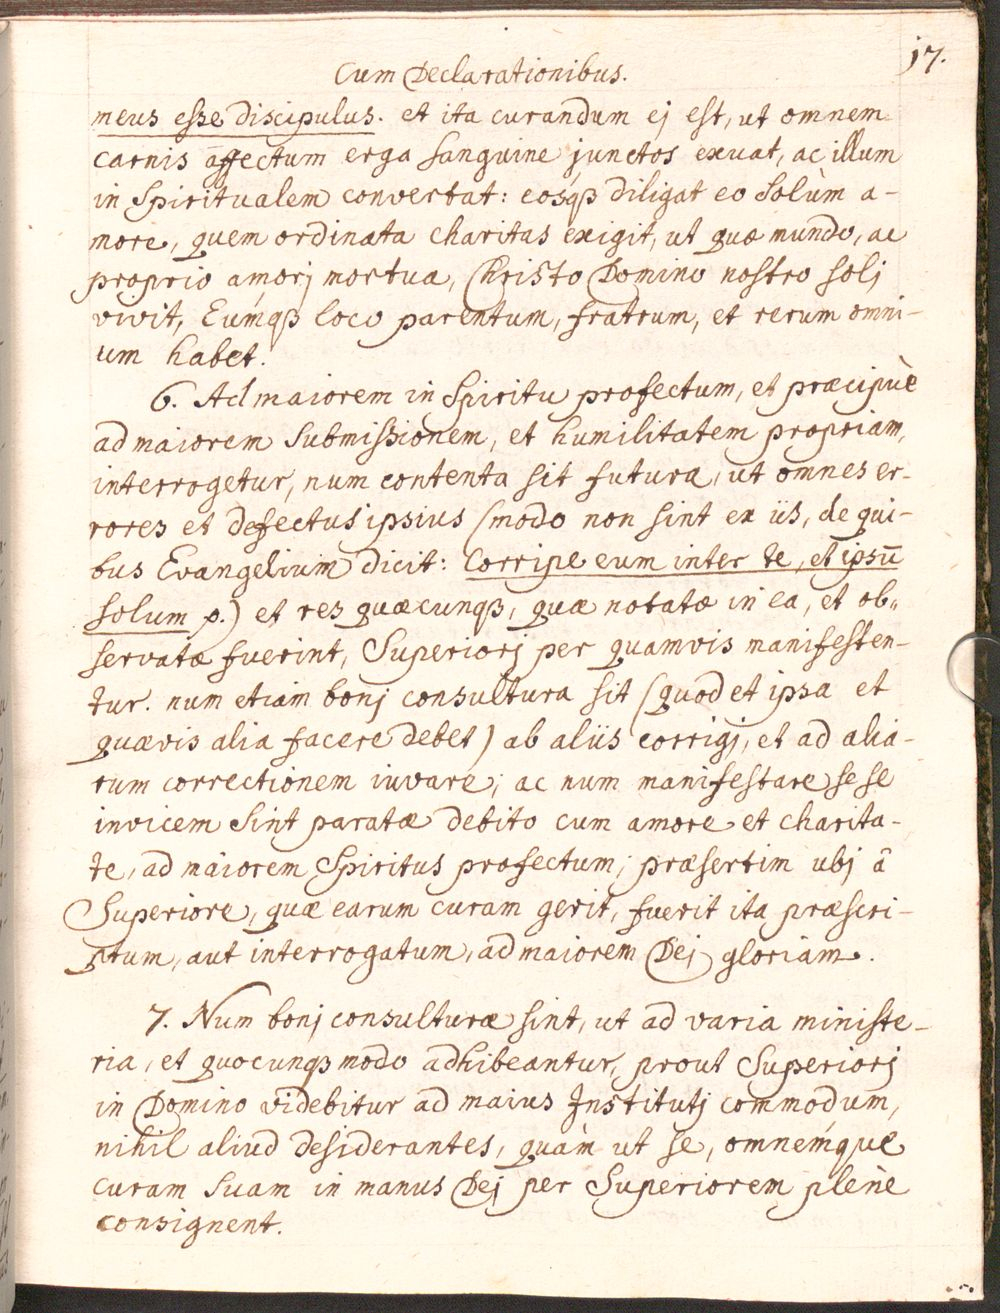 17.
Cum Declarationibus.
meus esse discipulus. et ita curandum ej est, ut omnem
carnis affectum erga sanguine junctos exuat, ac illum
in Spiritualem convertat: eosq́ꝫ diligat eo solùm a-
more, quem ordinata charitas exigit, ut quæ mundo, ac
proprio amorj mortua, Christo Domino nostro solj
vivit, Eúmqꝫ loco parentum, fratrum, et rerum omni-
um habet.
6. Ad maiorem in Spiritu profectum, et præcipuè
ad maiorem submissionem, et humilitatem propriam,
interrogetur, num contenta sit futura, ut omnes er-
rores et defectus ipsius (modo non sint ex iis, de qui-
bus Evangelium dicit: Corripe eum inter te, et ipsū
solum p.) et res quæcunqꝫ, quæ notatæ in ea, et ob-
servatæ fuerint, Superiorj per quamvis manifesten-
tur. num etiam bonj consultura sit (quod et ipsa et
quævis alia facere debet) ab aliis corrigj, et ad alia-
rum correctionem iuvare; ac num manifestare sese
invicem sint paratæ debito cum amore et charita-
te, ad maiorem Spiritus profectum; præsertim ubj â
Superiore, quæ earum curam gerit, fuerit ita præscri-
ptum, aut interrogatum, ad maiorem Dej gloriam.
7. Num bonj consulturæ sint, ut ad varia ministe-
ria, et quocunqꝫ modo adhibeantur, prout Superiorj
in Domino videbitur ad maius Institutj commodum,
nihil aliud desiderantes, quàm ut se, omnémque
curam suam in manus Dej per Superiorem plenè
consignent.